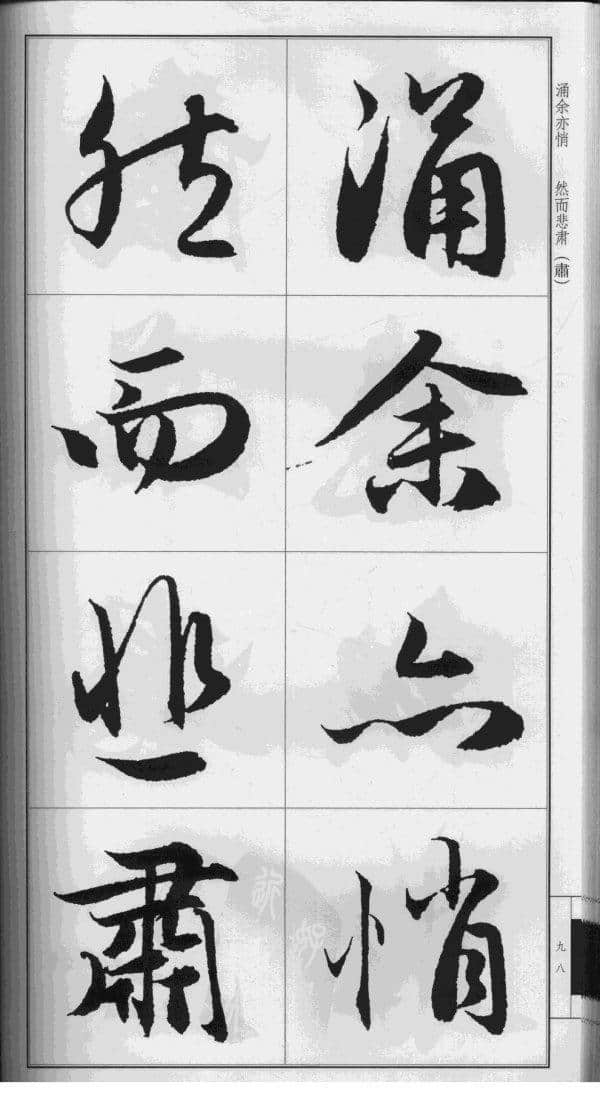 涌余亦悄
然而悲肃
涌余亦悄 然而悲肃（肅）
九八